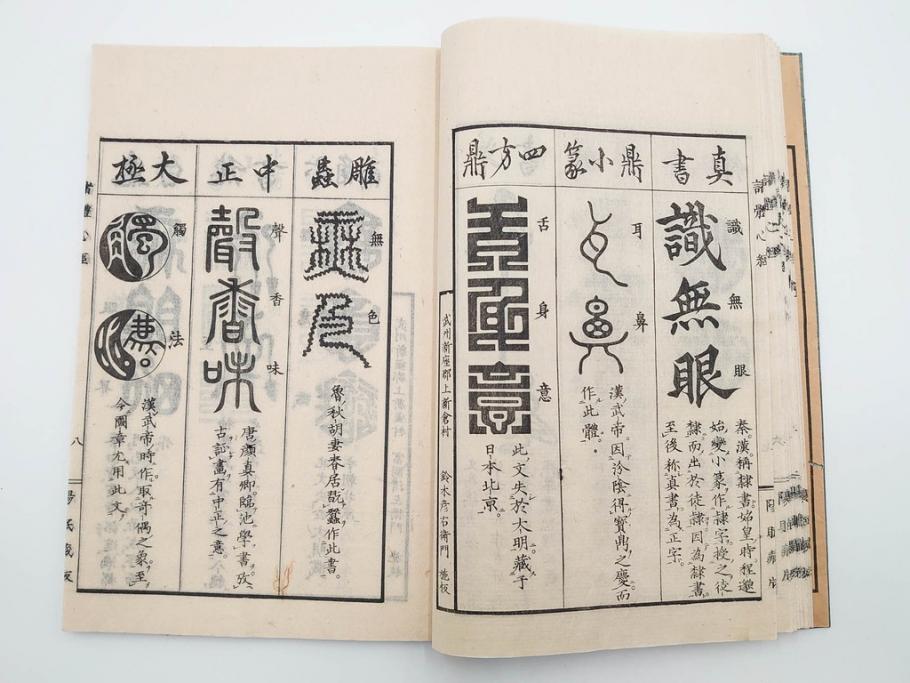 真書
識無眼
識
無
眼
秦漢稱隸書始皇時程邈
始變小篆作隸字授之徒
隸而出於徒隸因為隸書
至後称真書為正字。
鼎小篆
耳鼻
耳
鼻
漢武帝因汾陰得寶鼎之慶而
作此體。
四方鼎
舌身意
舌
身
意
此文失於大明藏于
日本北京。
武州新座郡上新倉村 鈴木彦右衛門 施板
雕蟲
無色
無
色
魯秋胡妻春居翫蠶作此書。
中正
聲香味
聲
香
味
唐顏真卿臨池學書攷
古証畫有中正之意
大極
觸法
觸
法
漢武帝時作取奇偶之象至
今圖章尤用此文
八
諸體心經